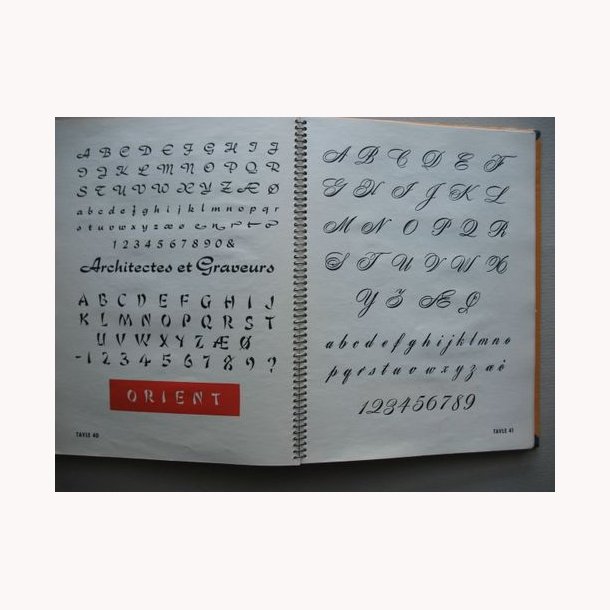 A B C D E F G H I J
I J K L M N O P Q R
S T U V W X Y Z Æ Ø
a b c d e f g h i j k l m n o p q r
s t u v w x y z æ ø
1 2 3 4 5 6 7 8 9 0 &
Architectes et Graveurs
A B C D E F G H I J
K L M N O P Q R S T
U V W X Y Z Æ Ø
- 1 2 3 4 5 6 7 8 9 ?
ORIENT
TAVLE 40
A B C D E F
G H I J K L
M N O P Q R
S T U V W X
Y Z Æ Ø
a b c d e f g h i j k l m n o
p q r s t u v w x y z æ ø
1 2 3 4 5 6 7 8 9
TAVLE 41